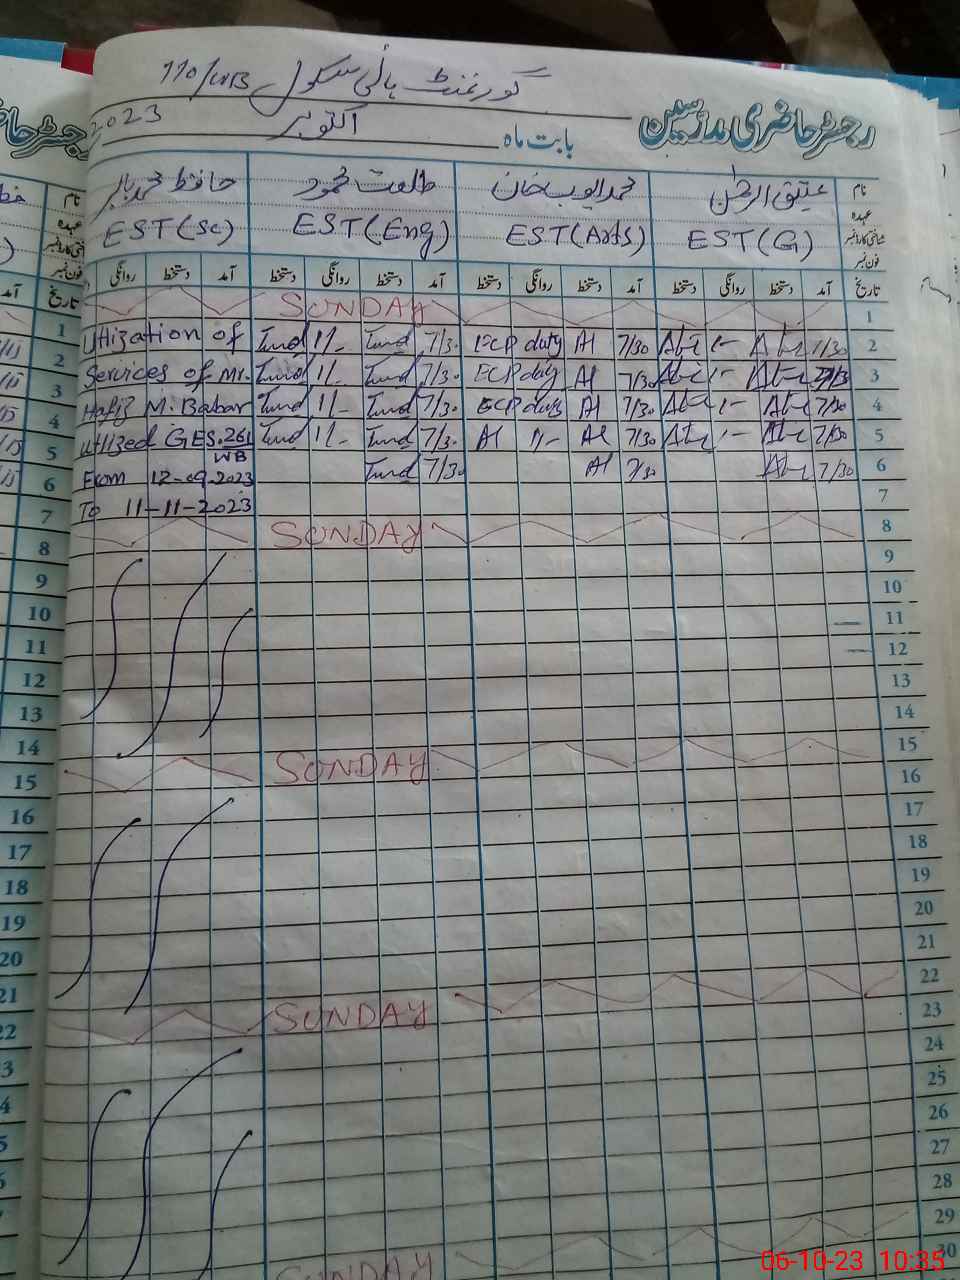 گورنمنٹ ہائی سکول 110/WB
رجسٹر حاضری مدرسین
بابت ماہ اکتوبر 2023
نام عتیق الرحمٰن محمد ایوب خان طلعت محمود حافظ محمد بابر
عہدہ EST(G) EST(Arts) EST(Eng) EST(Sc)
شناختی کارڈ نمبر
فون نمبر
تاریخ آمد دستخط روانگی دستخط آمد دستخط روانگی دستخط آمد دستخط روانگی دستخط آمد دستخط روانگی
SUNDAY 1
Utlization of 1/- 7/30 ECP duty 7/30 1/- 7/30 2
Services of Mr. 1/- 7/30 ECP duty 7/30 1/- 7/30 3
Hafiz M. Babar 1/- 7/30 ECP duty 7/30 1/- 7/30 4
Utlized GES.261 1/- 7/30 1/- 7/30 1/- 7/30 5
WB
From 12-09-2023 7/30 7/30 7/30 6
To 11-11-2023 7
SUNDAY 8
9
10
11
12
13
14
SUNDAY 15
16
17
18
19
20
21
SUNDAY 22
23
24
25
26
27
28
SUNDAY 29
30
06-10-23 10:35